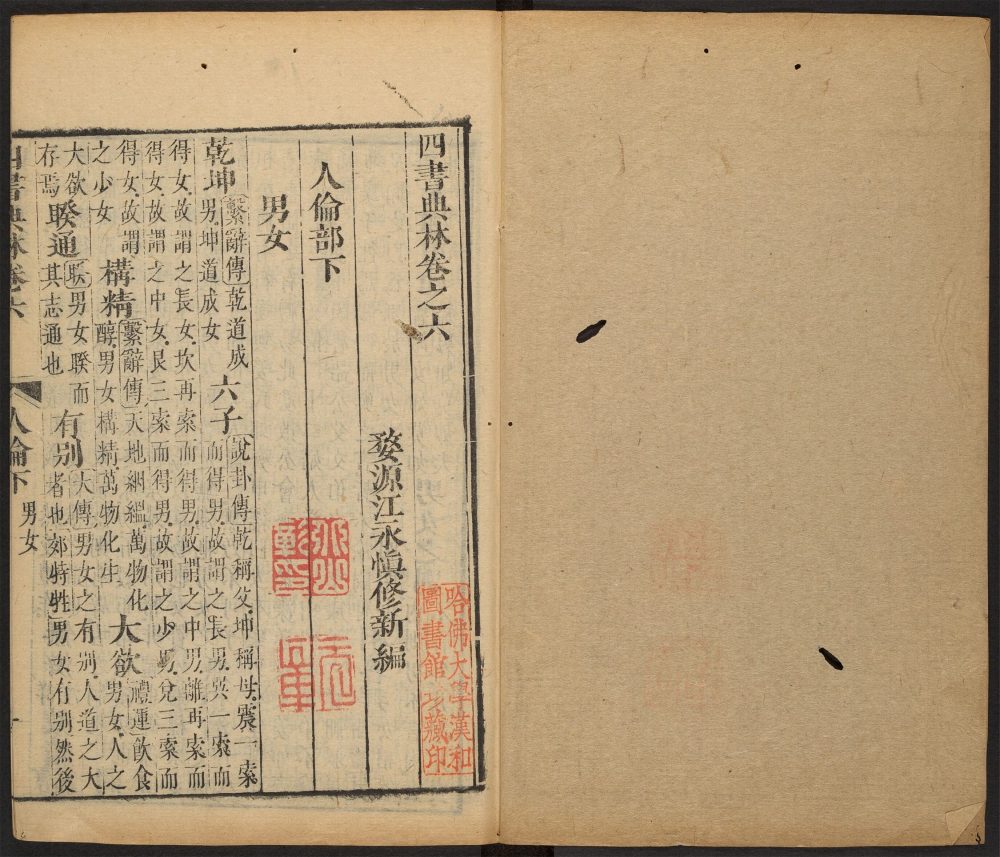 四書典林卷之六
婺源江永慎修新編
人倫部下
男女
乾坤繫辭傳乾道成男坤道成女六子說卦傳乾稱父坤稱母震一索而得男故謂之長男巽一索而
得女故謂之長女坎再索而得男故謂之中男離再索而得女故謂之中女艮三索而得男故謂之少男兌三索而
得女故謂之少女構精繫辭傳天地絪縕萬物化醇男女構精萬物化生大欲禮運飲食男女人之
大欲存焉睽通睽男女睽而其志通也有別大傳男女之有別人道之大者也郊特牲男女有別然後
四書典林卷六 人倫下 男女
哈佛大學漢和圖書館珍藏印